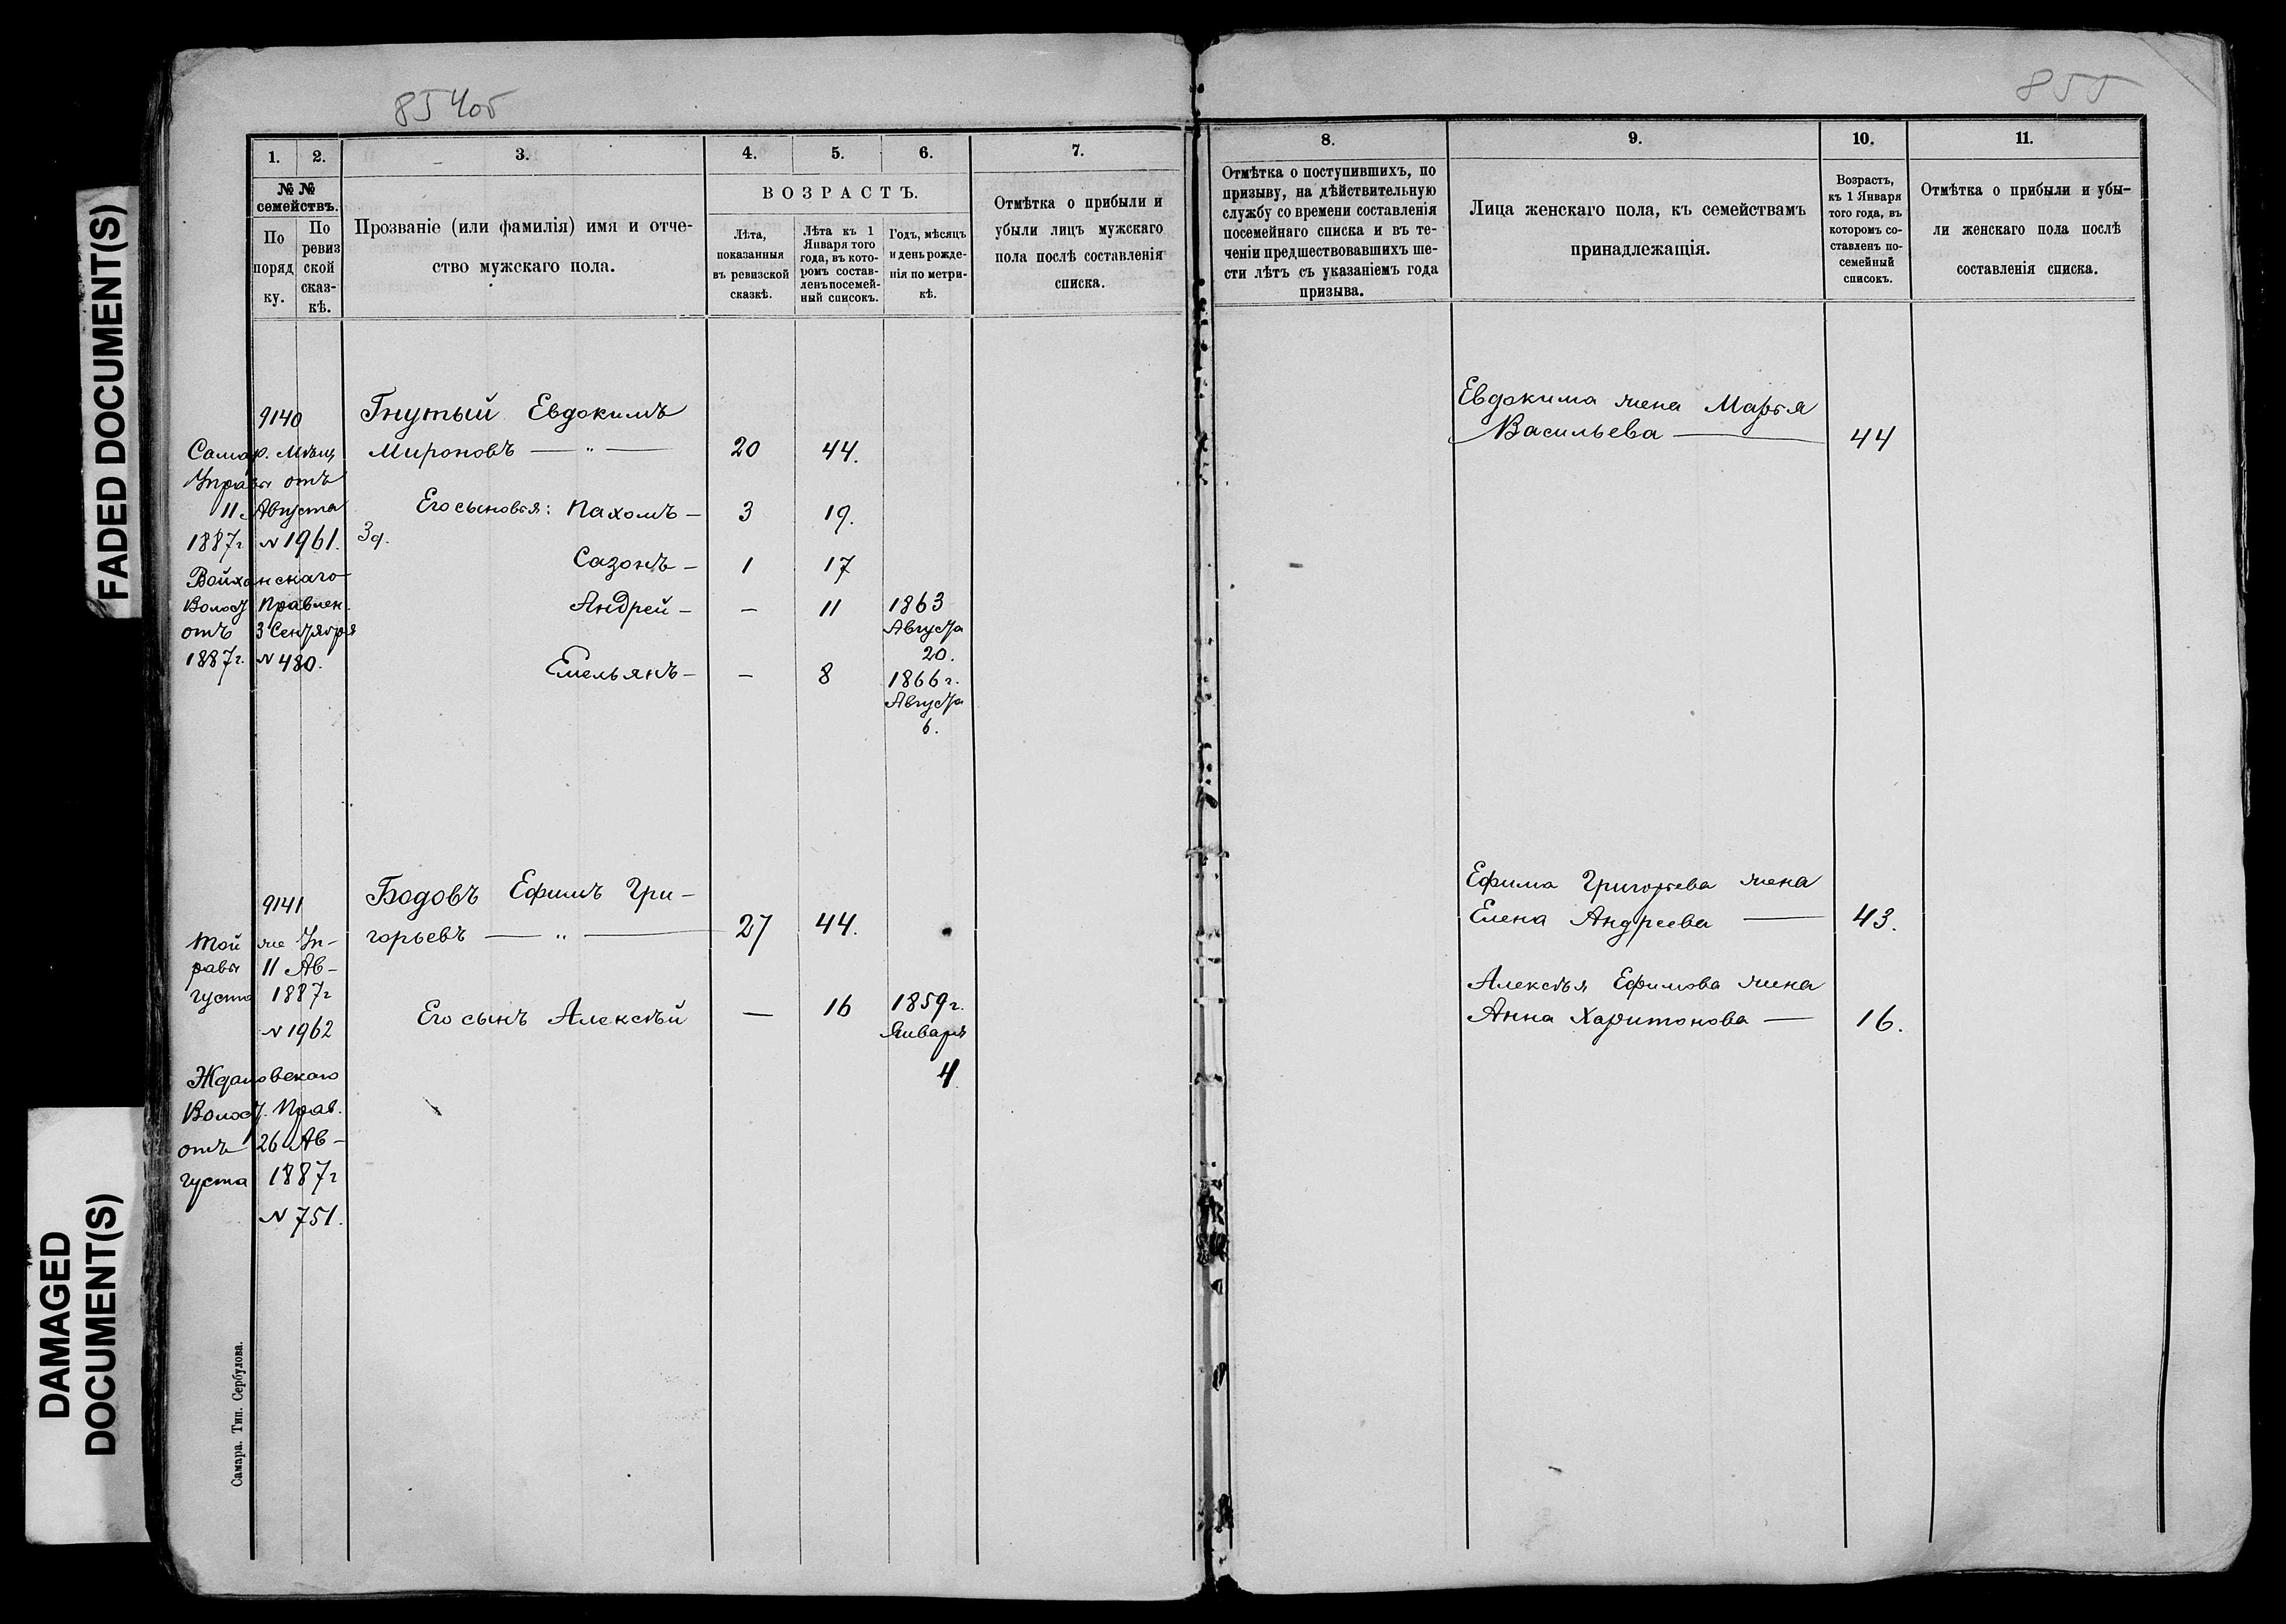 854об
855
FADED DOCUMENT(S)
DAMAGED
DOCUMENT(S)
1.
2.
3.
4.
5.
6.
7.
№ №
семействъ.
По
поряд
ку.
По
ревиз
ской
сказ-
кѣ.
Прозваніе (или фамилія) имя и отче-
ство мужскаго пола.
ВОЗРАСТЪ.
Лѣта,
показанныя
въ ревизской
сказкѣ.
Лѣта къ 1
Января того
года, въ кото-
ромъ состав-
ленъ посемей-
ный списокъ.
Годъ, мѣсяцъ
и день рожде-
нія по метри-
кѣ.
Отмѣтка о прибыли и
убыли лицъ мужскаго
пола послѣ составленія
списка.
9140
Самар. Мѣщ
Управы отъ
11 Августа
1887г №1961.
Войханскаго
Волост Правлен.
отъ 3 Сентября
1887г. №480.
Гнутый Евдокимъ
Мироновъ — " — 20 44.
Его сыновья: Пахомъ — 3 19.
Зд.
Сазонъ — 1 17
Андрей — — 11 1863
Августа
20.
Емельянъ — — 8 1866г.
Августа
6.
9141
Той же Уп-
равы 11 Ав-
густа 1887г
№1962
Ждановскаго
Волост. Прав.
отъ 26 Ав-
густа 1887г
№751.
Бодовъ Ефимъ Гри-
горьевъ — " — 27 44.
Его сынъ Алексѣй — 16 1859г.
Января
4.
Самара. Тип. Сербулова.
8.
9.
10.
11.
Отмѣтка о поступившихъ, по
призыву, на дѣйствительную
службу со времени составленія
посемейнаго списка и въ те-
ченіи предшествовавшихъ ше-
сти лѣтъ съ указаніемъ года
призыва.
Лица женскаго пола, къ семействамъ
принадлежащія.
Возрастъ,
къ 1 Января
того года, въ
которомъ со-
ставленъ по-
семейный
списокъ.
Отмѣтка о прибыли и убы-
ли женскаго пола послѣ
составленія списка.
Евдокима жена Марья
Васильева — 44
Ефима Григорьева жена
Елена Андреева — 43.
Алексѣя Ефимова жена
Анна Харитонова — 16.